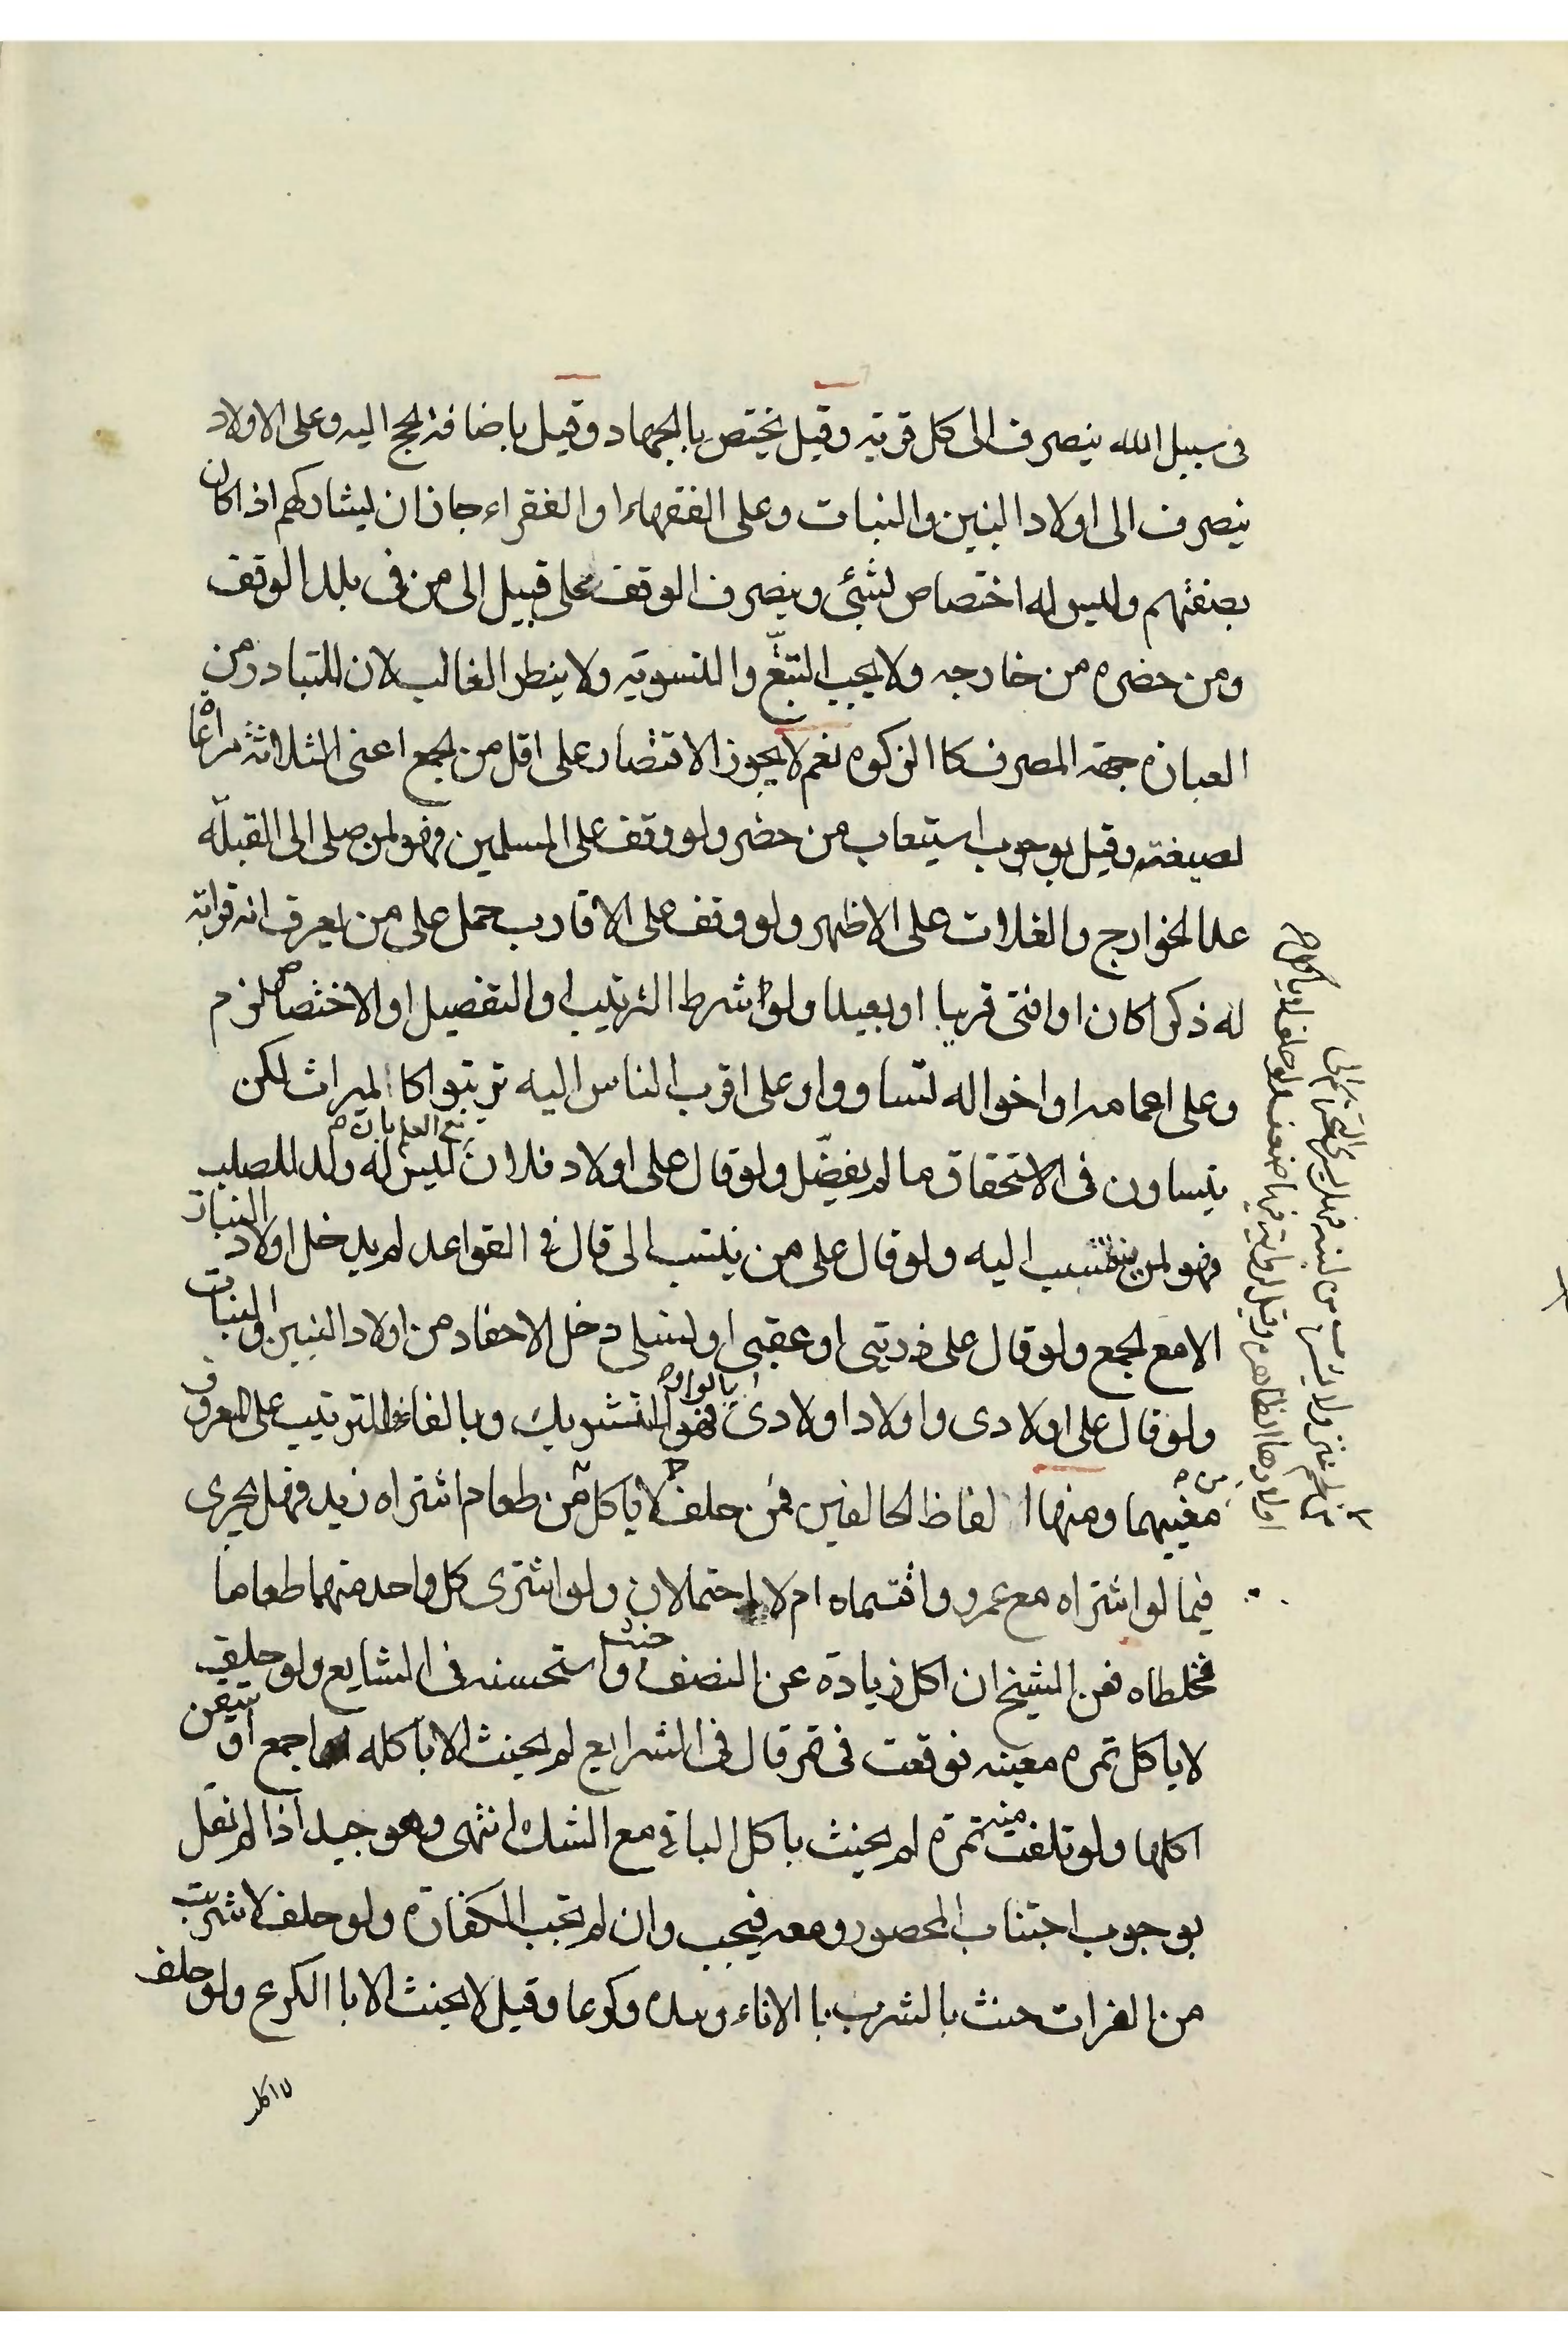 فى سبيل الله ينصرف الى كل قربة وقيل يختص بالجهاد وقيل باضافة الحج اليه وعلى الاولاد
ينصرف الى اولاد البنين والبنات وعلى الفقهاء او الفقراء جاز ان يشاركهم اذا كان
بصفتهم وليس له اختصاص بشئ وينصرف الوقف على قبيل الى من فى بلد الوقف
ومن حضره من خارجه ولا يجب التتبّع والتسوية ولا ينظر الغالب لان المتبادر من
العبارة جهة المصرف كا الزكوه نعم لا يجوز الاقتصار على اقل من الجمع اعنى الثلاثة مراعا
لصيغته وقيل بوجوب استيعاب من حضر ولو وقف على المسلمين فهو لمن صلى الى القبلة
عدا الخوارج والغلات على الاظهر ولو وقف على الاقارب حمل على من يعرف انه قرابة
له ذكرا كان او انثى قريبا او بعيدا ولو شرط الترتيب او التفضيل او الاختصاص لزم
وعلى اعمامه او اخواله تساووا وعلى اقرب الناس اليه ترتبوا كا الميراث لكن
يتساون فى الاستحقاق ما لم يفضّل ولو قال على اولاد فلان مع العلم بان ليس له ولد للصلب
فهو لمن ينتسب اليه ولو قال على من ينتسب الى قال فى القواعد لم يدخل اولاد البنات
الا مع الجمع ولو قال على ذريتى او عقبى او نسلى دخل الاحفاد من اولاد البنين والبنات
ولو قال على اولادى واولاد اولادى بالواو فهو التشريك وبالفاء للترتيب على المعروف
من معنيهما ومنها الفاظ الحالفين فمن حلف لا ياكل من طعام اشتراه زيد فهل يجرى
فيما لو اشتراه مع عمرو واقتسماه ام لا احتملان ولو اشترى كل واحد منهما طعاما
فخلطاه فعن الشيخ ان اكل زيادة عن النصف حنث واستحسنه فى الشرايع ولو حلف
لا ياكل تمره معينه فوقعت فى تمر قال فى الشرايع لم يحنث الا باكله اجمع او تيقن
اكلها ولو تلفت منه تمرة لم يحنث باكل الباقى مع الشك انتهى وهو جيد اذا لم نقل
بوجوب اجتناب المحصور ومعه فيجب وان لم تجب الكفارة ولو حلف لا شربت
من الفرات حنث بالشرب با الاناء وبيده وكرعا وقيل لا يحنث الا با الكرع ولو حلف